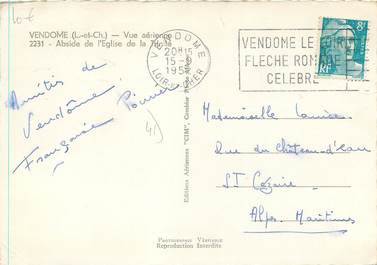 10€
VENDOME (L.-et-Ch.) — Vue aérienne
2231 - Abside de l'Eglise de la Trinité
VENDOME
20H15
15-9
LOIR-ET-CHER
VENDOME LE LOIR
FLECHE ROMANE
CELEBRE
8F
RF
Amitiés de
Vendôme
Française
41)
Editions Aériennes "CIM", Combier
Mademoiselle
Rue du Château d'eau
ST Cézaire
Alpes Maritimes
Photographie Véritable
Reproduction Interdite